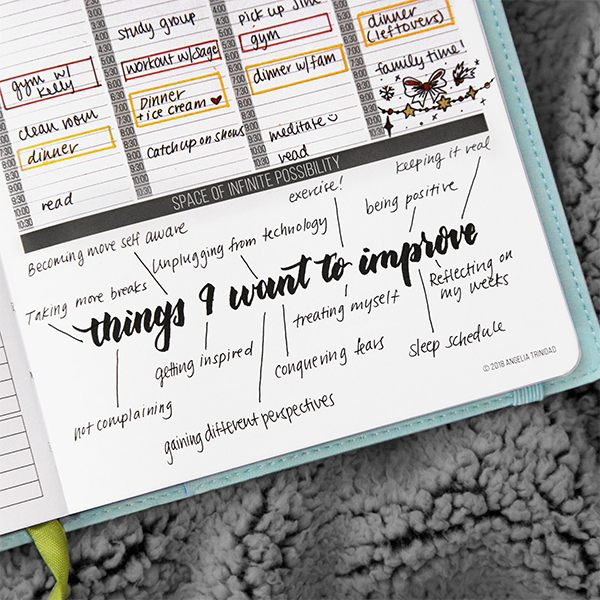 study group
pick up
dinner
(leftovers)
gym
gym w/
Kelly
workout w/ Sage
family time!
dinner w/ fam
Dinner
+ ice cream ♥
clean room
dinner
catch up on shows
meditate
read
read
SPACE OF INFINITE POSSIBILITY
exercise!
keeping it real
Becoming more self aware
Unplugging from technology
being positive
Taking more breaks
things I want to improve
Reflecting on
my weeks
treating myself
getting inspired
conquering fears
sleep schedule
not complaining
gaining different perspectives
© 2018 ANGELIA TRINIDAD